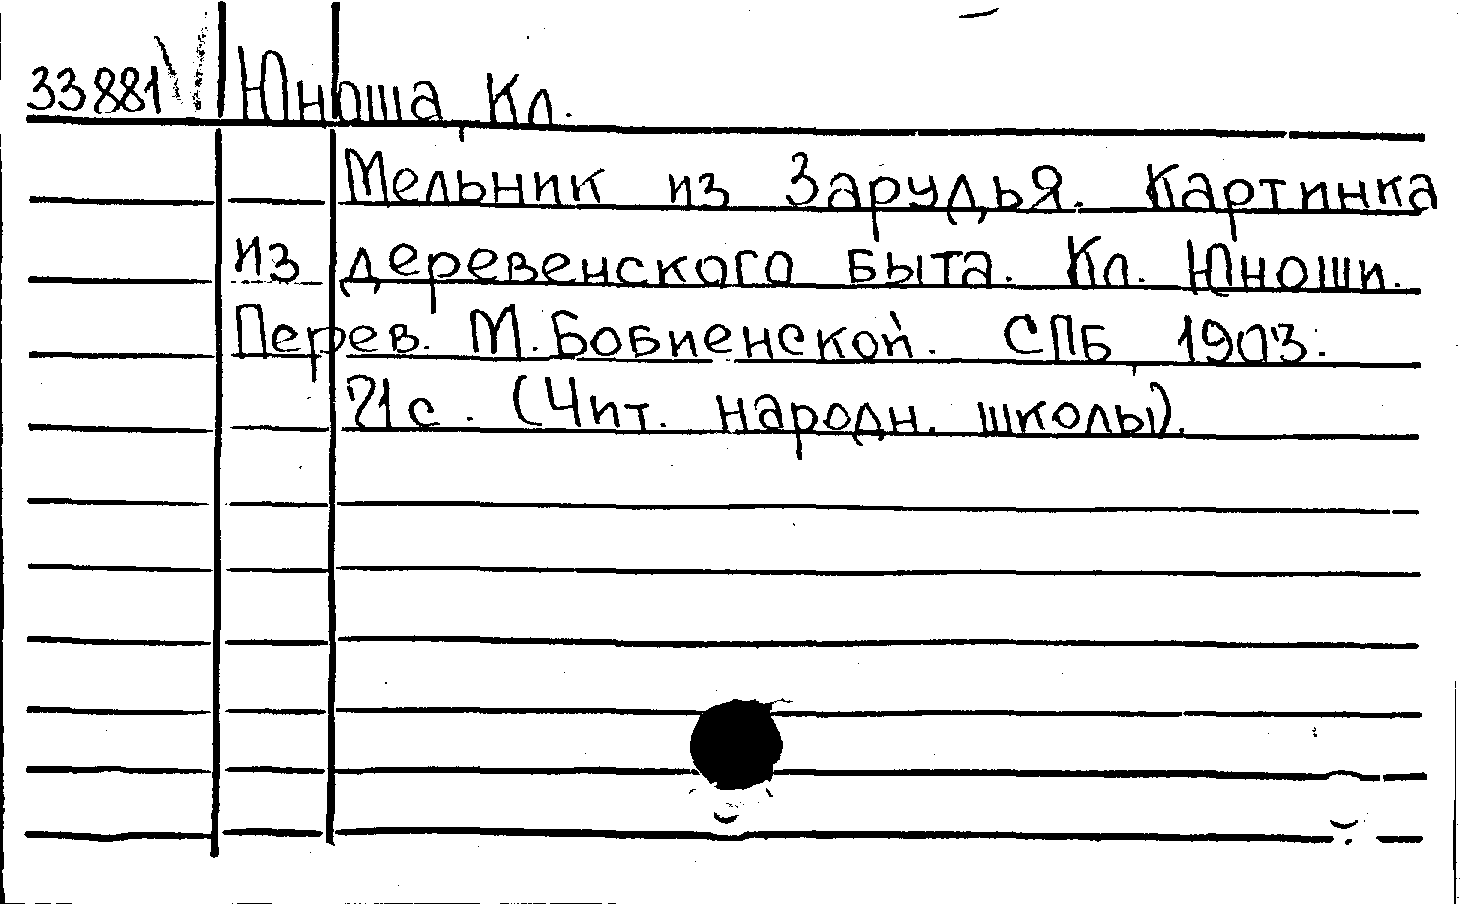 33881 Юноша Кл.
Мельник из Зарудья. Картинка
из деревенского быта. Кл. Юноши.
Перев. М. Бобиенской. СПБ 1903.
21с. (Чит. народн. школы).